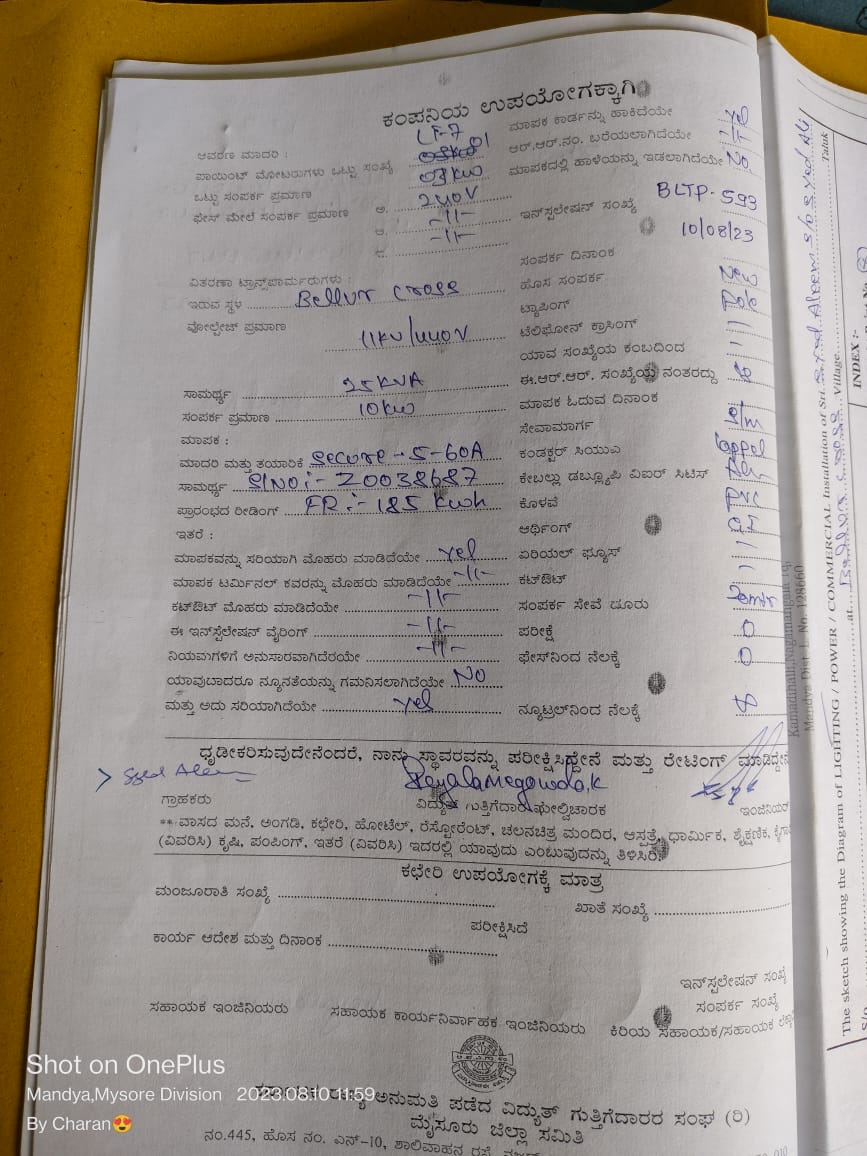 ಕಂಪನಿಯ ಉಪಯೋಗಕ್ಕಾಗಿ
ಆವರಣ ಮಾದರಿ : LT-7
ಪಾಯಿಂಟ್ ಮೋಟರುಗಳು ಒಟ್ಟು ಸಂಖ್ಯೆ 01
ಒಟ್ಟು ಸಂಪರ್ಕ ಪ್ರಮಾಣ 03 KW
ಫೇಸ್ ಮೇಲೆ ಸಂಪರ್ಕ ಪ್ರಮಾಣ ಅ. 240V
ಆ. -11-
-11-
ವಿತರಣಾ ಟ್ರಾನ್ಸ್‌ಫಾರ್ಮರುಗಳು :
ಇರುವ ಸ್ಥಳ Bellur Cross
ವೋಲ್ಟೇಜ್ ಪ್ರಮಾಣ 11KV/440V
ಸಾಮರ್ಥ್ಯ 25KVA
ಸಂಪರ್ಕ ಪ್ರಮಾಣ 10KW
ಮಾಪಕ :
ಮಾದರಿ ಮತ್ತು ತಯಾರಿಕೆ Secure - 5-60A
ಸಾಮರ್ಥ್ಯ SlNO :- 20038687
ಪ್ರಾರಂಭದ ರೀಡಿಂಗ್ FR :- 185 Kwh
ಇತರೆ :
ಮಾಪಕವನ್ನು ಸರಿಯಾಗಿ ಮೊಹರು ಮಾಡಿದೆಯೇ yes
ಮಾಪಕ ಟರ್ಮಿನಲ್ ಕವರನ್ನು ಮೊಹರು ಮಾಡಿದೆಯೇ -11-
ಕಟ್‌ಔಟ್ ಮೊಹರು ಮಾಡಿದೆಯೇ -11-
ಈ ಇನ್‌ಸ್ಟಲೇಷನ್ ವೈರಿಂಗ್ -11-
ನಿಯಮಗಳಿಗೆ ಅನುಸಾರವಾಗಿದೆಯೇ -11-
ಯಾವುದಾದರೂ ನ್ಯೂನತೆಯನ್ನು ಗಮನಿಸಲಾಗಿದೆಯೇ NO
ಮತ್ತು ಅದು ಸರಿಯಾಗಿದೆಯೇ yes
ಮಾಪಕ ಕಾರ್ಡನ್ನು ಹಾಕಿದೆಯೇ yes
ಆರ್.ಆರ್.ನಂ. ಬರೆಯಲಾಗಿದೆಯೇ -11-
ಮಾಪಕದಲ್ಲಿ ಹಾಳೆಯನ್ನು ಇಡಲಾಗಿದೆಯೇ No
ಇನ್‌ಸ್ಟಲೇಷನ್ ಸಂಖ್ಯೆ BLTP-593
ಸಂಪರ್ಕ ದಿನಾಂಕ 10/08/23
ಹೊಸ ಸಂಪರ್ಕ New
ಟ್ಯಾಪಿಂಗ್ Pole
ಟೆಲಿಫೋನ್ ಕ್ರಾಸಿಂಗ್
ಯಾವ ಸಂಖ್ಯೆಯ ಕಂಬದಿಂದ
ಈ.ಆರ್.ಆರ್. ಸಂಖ್ಯೆಯ ನಂತರದ್ದು
ಮಾಪಕ ಓದುವ ದಿನಾಂಕ
ಸೇವಾಮಾರ್ಗ
ಕಂಡಕ್ಟರ್ ಸಿಯುಎ
ಕೇಬಲ್ಲು ಡಬ್ಲ್ಯೂಪಿ ವಿಐರ್ ಸಿಟಿಸ್
ಕೊಳವೆ PVC
ಆರ್ಥಿಂಗ್ GI
ಏರಿಯಲ್ ಫ್ಯೂಸ್
ಕಟ್‌ಔಟ್
ಸಂಪರ್ಕ ಸೇವೆ ದೂರ
ಪರೀಕ್ಷೆ 0
ಫೇಸ್‌ನಿಂದ ನೆಲಕ್ಕೆ 0
ನ್ಯೂಟ್ರಲ್‌ನಿಂದ ನೆಲಕ್ಕೆ
ಧೃಡೀಕರಿಸುವುದೇನೆಂದರೆ, ನಾನು ಸ್ಥಾವರವನ್ನು ಪರೀಕ್ಷಿಸಿದ್ದೇನೆ ಮತ್ತು ರೇಟಿಂಗ್ ಮಾಡಿದ್ದೇನೆ
Syed Aleem
ಗ್ರಾಹಕರು ವಿದ್ಯುತ್ ಗುತ್ತಿಗೆದಾರ/ಮೇಲ್ವಿಚಾರಕ ಇಂಜಿನಿಯರ್
** ವಾಸದ ಮನೆ, ಅಂಗಡಿ, ಕಛೇರಿ, ಹೋಟೆಲ್, ರೆಸ್ಟೋರೆಂಟ್, ಚಲನಚಿತ್ರ ಮಂದಿರ, ಆಸ್ಪತ್ರೆ, ಧಾರ್ಮಿಕ, ಶೈಕ್ಷಣಿಕ,
(ವಿವರಿಸಿ) ಕೃಷಿ, ಪಂಪಿಂಗ್, ಇತರೆ (ವಿವರಿಸಿ) ಇದರಲ್ಲಿ ಯಾವುದು ಎಂಬುವುದನ್ನು ತಿಳಿಸಿರಿ.
ಕಛೇರಿ ಉಪಯೋಗಕ್ಕೆ ಮಾತ್ರ
ಮಂಜೂರಾತಿ ಸಂಖ್ಯೆ ಖಾತೆ ಸಂಖ್ಯೆ
ಪರೀಕ್ಷಿಸಿದೆ
ಕಾರ್ಯ ಆದೇಶ ಮತ್ತು ದಿನಾಂಕ
ಇನ್‌ಸ್ಟಲೇಷನ್ ಸಂಖ್ಯೆ
ಸಂಪರ್ಕ ಸಂಖ್ಯೆ
ಸಹಾಯಕ ಇಂಜಿನಿಯರು ಸಹಾಯಕ ಕಾರ್ಯನಿರ್ವಾಹಕ ಇಂಜಿನಿಯರು ಕಿರಿಯ ಸಹಾಯಕ/ಸಹಾಯಕ
ರಾಜ್ಯ ಅನುಮತಿ ಪಡೆದ ವಿದ್ಯುತ್ ಗುತ್ತಿಗೆದಾರರ ಸಂಘ (ರಿ)
ಮೈಸೂರು ಜಿಲ್ಲಾ ಸಮಿತಿ
ನಂ.445, ಹೊಸ ನಂ. ಎನ್-10, ಶಾಲಿವಾಹನ ರಸ್ತೆ,
Shot on OnePlus
Mandya,Mysore Division 2023.08.10 11:59
By Charan😍
The sketch showing the Diagram of LIGHTING / POWER / COMMERCIAL Installation of Sri. Syed Aleem S/o Syed Ali
at Village Taluk
INDEX :-
Mandya Dist. L. No. 128660